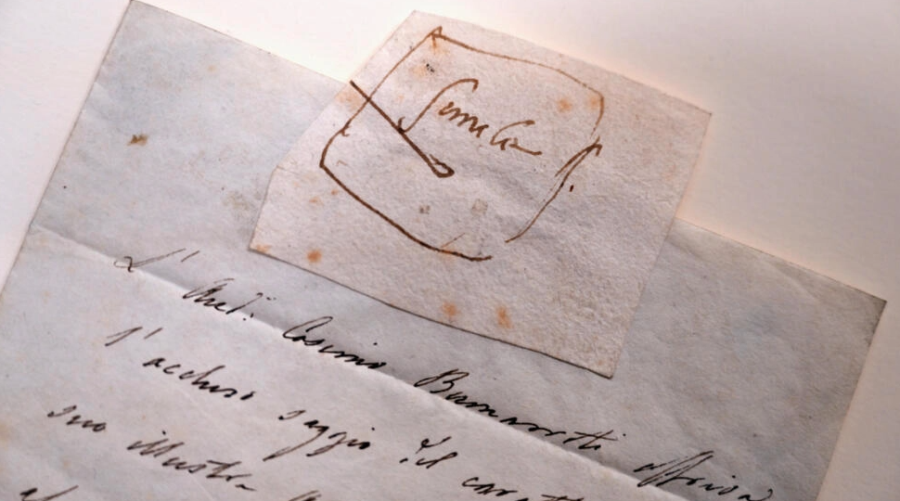 Simile
L' Aud: Cosimo Buonarroti offriva
l' accluso saggio del caratt
suo illustre
al